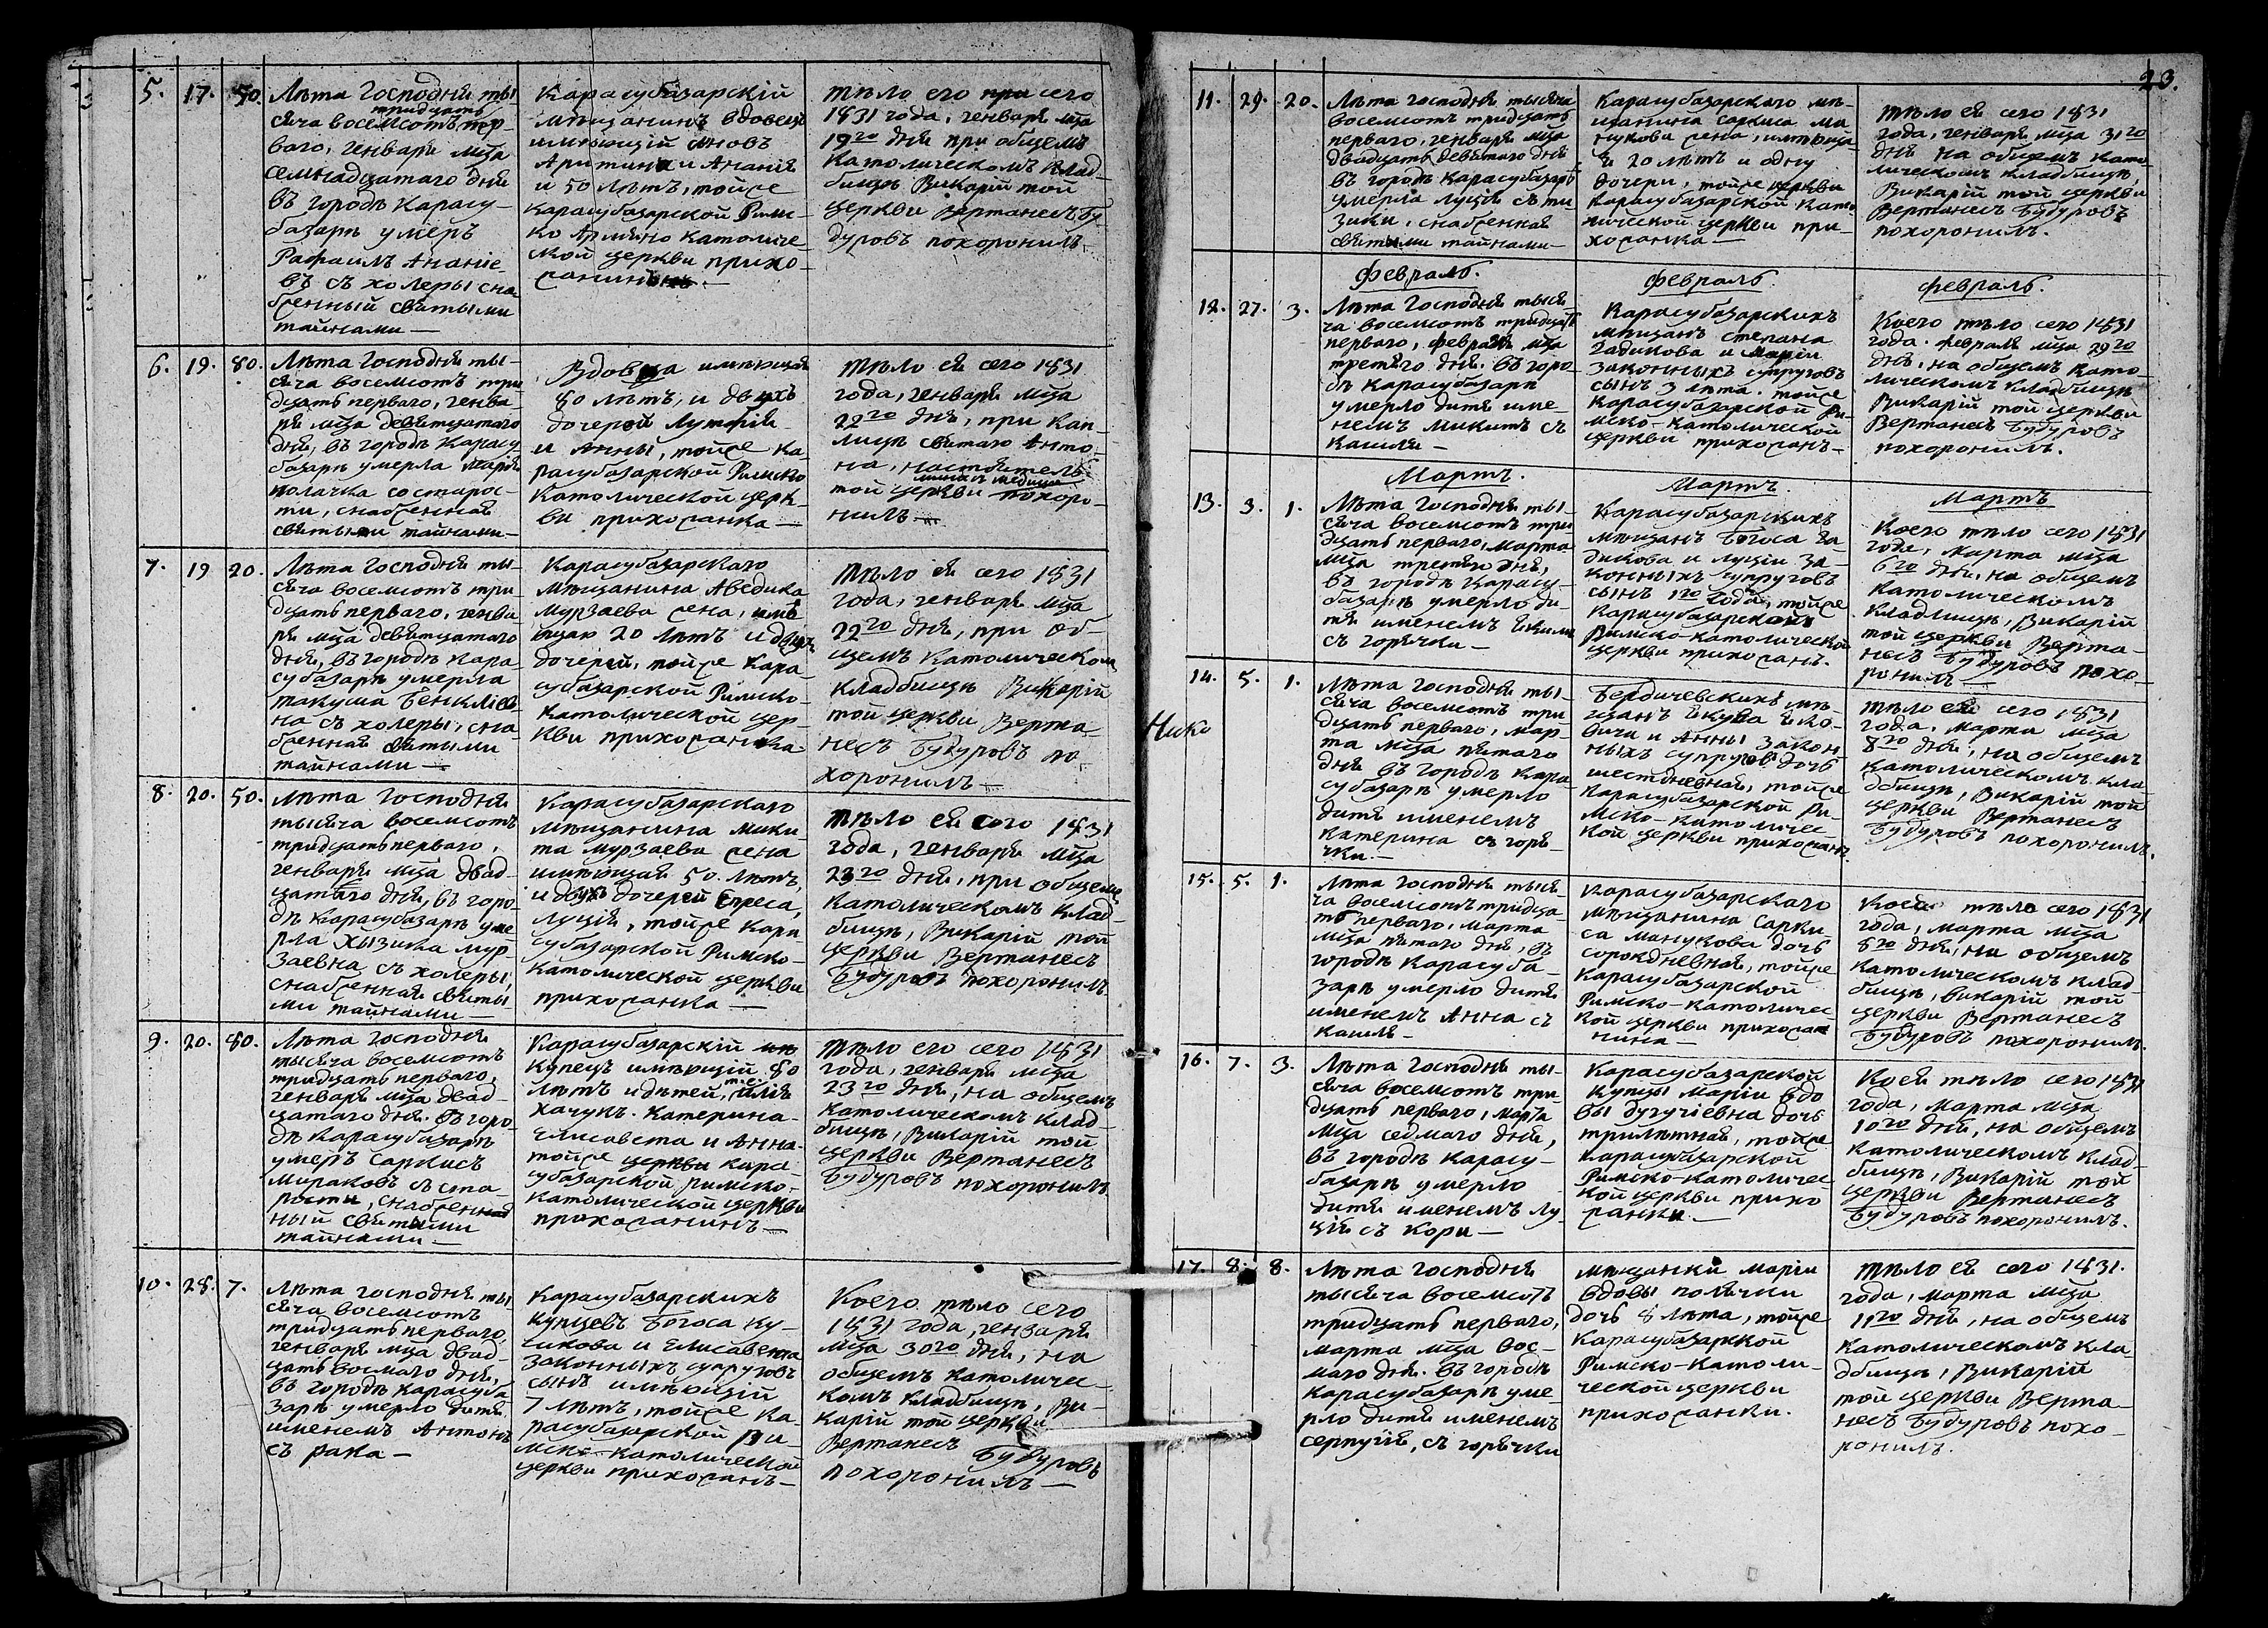 23.
5. 17. 50.
Лѣта Господня ты
сяча восемсотъ тридцать пер-
ваго, генваря мца
семнадцатаго дня
въ городѣ Карасу-
базарѣ умеръ
Рафаилъ Ананіе-
въ съ холеры сна
бженный святыми
тайнами —
Карасубазарскій
мѣщанинъ вдовецъ
имѣющій сновъ
Арити и Ананія
и 50 лѣтъ, тойже
Карасубазарской Римс-
ко Армяно Католиче
ской церкви прихо-
жанинъ.—
тѣло его при сего
1831 года, генваря мца
19го дня при общемъ
Католическомъ Клад-
бищѣ Викарій той
церкви Вертанесъ Бу-
дуровъ похоронилъ.
6. 19. 80.
Лѣта Господня ты-
сяча восемсотъ три
дцать перваго, генва-
ря мца девятцатаго
дня, въ городѣ Карасу
базарѣ умерла Марія
полачка со старос-
ти, снабженная
святыми тайнами—
Вдовица имѣющая
80 лѣтъ, и двухъ
дочерей
и Анны, тойже Ка-
расубазарской Римско
Католической церк-
ви прихожанка —
Тѣло ея сего 1831
года, генваря мца
22го дня, при Кап-
лицѣ святаго Анто-
на, настоятель
той церкви похоро-
нилъ —
7. 19 20.
Лѣта Господня ты-
сяча восемсотъ три-
дцать перваго, генва
ря мца девятцатаго
дня, въ городѣ Кара-
субазарѣ умерла
такуша Бенкліев
на съ холеры, сна-
бженная святыми
тайнами —
Карасубазарскаго
мѣщанина Аведика
Мурзаева жена, имѣ
ющаю 20 лѣтъ и двухъ
дочерей, тойже Кара
субазарской Римско-
Католической цер-
кви прихожанка
Тѣло ея сего 1831
года, генваря мца
22го дня, при об-
щемъ Католическомъ
кладбищѣ Викарій
той церкви Верта-
несъ Будуровъ по
хоронилъ —
8. 20. 50.
Лѣта Господня
тысяча восемсотъ
тридцать перваго,
генваря мца двад-
цатаго дня, въ горо-
дѣ Карасубазарѣ уме
рла Хызика Мур-
заевна съ холеры,
снабженная святы
ми тайнами —
Карасубазарскаго
мѣщанина Мики
та Мурзаева жена
имѣющая 50. лѣтъ,
и двухъ дочерей Епреса,
Луція, тойже Кара
субазарской Римско-
Католической церкви
прихожанка —
Тѣло ея сего 1831
года, генваря мца
23го дня, при общемъ
Католическомъ Клад-
бищѣ, Викарій той
церкви Вертанесъ
Будуровъ похоронилъ
9. 20. 80.
Лѣта Господня
тысяча восемсотъ
тридцать перваго,
генваря мца двад-
цатаго дня въ горо-
дѣ Карасубазарѣ
умеръ Саркисъ
Мираковъ съ ста-
рости, снабжен
ный святыми
тайнами —
Карасубазарскій
Купецъ имѣющій 80
лѣтъ и дѣтей, т.е. Илія
Хачукъ. Катерина-
Елисавета и Анна-
тойже церкви Кара-
субазарской римско-
Католической церкви
прихожанинъ —
Тѣло его сего 1831
года, генваря мца
23го дня, на общемъ
Католическомъ Клад-
бищѣ, Викарій той
церкви Вертанесъ
Будуровъ похоронилъ
10. 28. 7.
Лѣта Господня ты
сяча восемсотъ
тридцать перваго,
генваря мца двад-
цать восмаго дня,
въ городѣ Карасуба
зарѣ умерло дитя
именемъ Антонъ
съ рака —
Карасубазарскихъ
Купцовъ Богоса Ку-
шкова и Елисавета
законныхъ супруговъ
сынъ имѣющій
7 лѣтъ, тойже Ка-
расубазарской Ри-
мско-Католической
церкви прихожанъ—
Коего тѣло сего
1831 года, генваря
мца 30го дня, на
общемъ католичес-
комъ кладбищѣ, Ви-
карій той церкви
Вертанесъ Будуровъ
похоронилъ —
11. 29. 20.
Лѣта Господня тысяча
восемсотъ тридцать
перваго, генваря мца
двадцать девятаго дня
въ городѣ Карасубазарѣ
умерла Луція съ ти
зики, снабженная
святыми тайнами—
Карасубазарскаго мѣ-
щанина Саркиса Ма
нукова жена, имѣюща-
я 20 лѣтъ и одну
дочери, тойже церкви
Карасубазарской Като-
лической церкви при-
хожанка —
тѣло ея сего 1831
года, генваря мца 31го
дня на общемъ Като-
лическомъ кладбищѣ,
Викарій той церкви
Вертанесъ Будуровъ
похоронилъ.
Февраль. Февраль. Февраль.
12. 27. 3.
Лѣта Господня тыся
ча восемсотъ тридцать
перваго, февраля мца
третяго дня. въ горо-
дѣ Карасубазарѣ
умерло дитя име-
немъ Микитъ съ
кашля —
Карасубазарскихъ
мѣщанъ Степана
Гадикова и Маріи
законныхъ супруговъ
сынъ 3 лѣта. тойже
Карасубазарской Ри-
мско-Католической
церкви прихожанъ—
Коего тѣло сего 1831
года. февраля мца 29го
дня, на общемъ Като-
лическомъ кладбищѣ
Викарій той церкви
Вертанесъ Будуровъ
похоронилъ.
Мартъ. Мартъ. Мартъ
13. 3. 1.
Лѣта Господня ты-
сяча восемсотъ три
дцать перваго, марта
мца третяго дня,
въ городѣ Карасу-
базарѣ умерло ди-
тя именемъ
съ горячки —
Карасубазарскихъ
мѣщанъ Богоса Га-
дикова и Луціи за-
конныхъ супруговъ
сынъ 1го года, тойже
Карасубазарской
Римско-Католической
церкви прихожанъ.
Коего тѣло сего 1831
года, марта мца
6го дня, на общемъ
Католическомъ
Кладбищѣ, Викарій
той церкви Верта-
несъ Будуровъ похо-
ронилъ —
14. 5. 1.
Лѣта Господня ты-
сяча восемсотъ три
дцать перваго, мар-
та мца пятаго
дня въ городѣ Кара
субазарѣ умерло
дитя именемъ
Катерина съ горя-
чки.—
Бердичевскихъ мѣ-
щанъ
и Анны закон
ныхъ супруговъ дочь
шестдневная, тойже
Карасубазарской Ри-
мско-Католичес-
кой церкви прихожанъ.
тѣло ея сего 1831
года, марта мца
8го дня, на общемъ
Католическомъ кла-
дбищѣ, Викарій той
церкви Вертанесъ
Будуровъ похоронилъ.
15. 5. 1.
Лѣта Господня тыся
ча восемсотъ тридца
ть перваго, марта
мца пятаго дня, въ
городѣ Карасуба-
зарѣ умерло дитя
именемъ Анна съ
кашля —
Карасубазарскаго
мѣщанина Сарки
са Манукова дочь
сорокдневная, тойже
Карасубазарской
Римско-Католичес
кой церкви прихожа
нина —
Коея тѣло сего 1831
года, марта мца
8го дня, на общемъ
Католическомъ клад-
бищѣ, Викарій той
церкви Вертанесъ
Будуровъ похоронилъ.
16. 7. 3.
Лѣта Господня ты-
сяча восемсотъ три
дцать перваго, марта
мца седмаго дня,
въ городѣ Карасу-
базарѣ умерло
дитя именемъ Лу-
ція съ кори —
Карасубазарской
Купцы Маріи вдо
вы Дугучіевна дочь
трилѣтная, тойже
Карасубазарской
Римско-Католичес
кой церкви прихо
жанки.—
Коея тѣло сего 1831
года, марта мца
10го дня, на общемъ
Католическомъ Клад-
бищѣ, Викарій той
церкви Вертанесъ
Будуровъ похоронилъ.
17. 8. 8.
Лѣта Господня
тысяча восемсотъ
тридцать перваго,
марта мца вос-
маго дня. въ городѣ
Карасубазарѣ уме
рло дитя именемъ
Серпугія, съ горячки
мѣщанки Маріи
вдовы полячки
дочь 8 лѣта, тойже
Карасубазарской
Римско-Католи-
ческой церкви
прихожанки.
тѣло ея сего 1831.
года, марта мца
11го дня, на общемъ
Католическомъ кла-
дбищѣ, Викарій
той церкви Верта
несъ Будуровъ похо-
ронилъ.